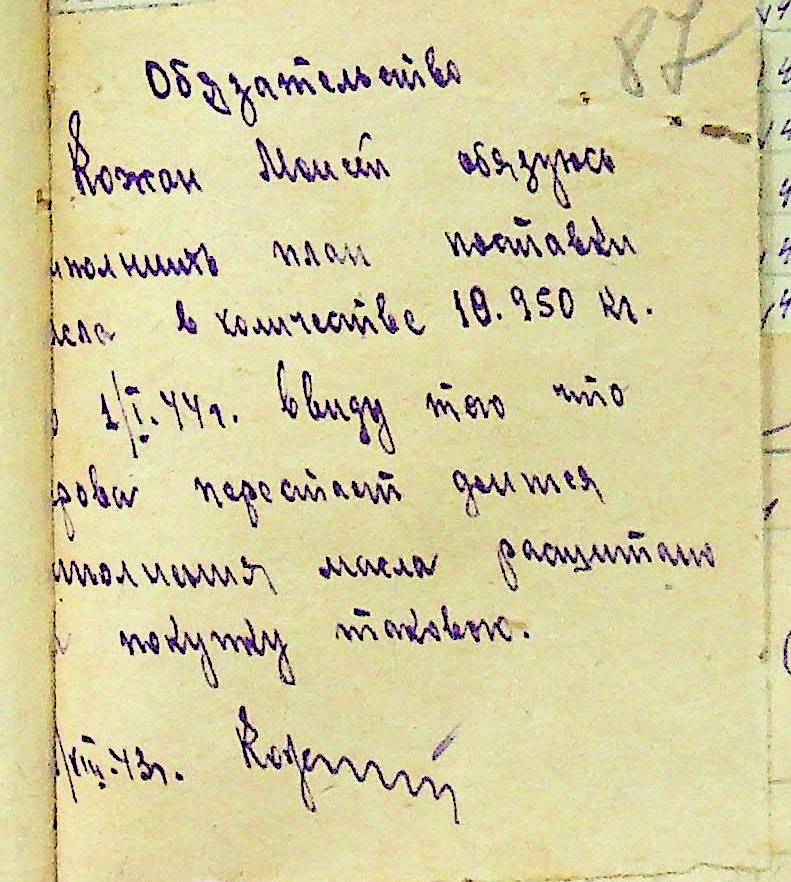 87
Обязательство
Кожан Моисей обязуюсь
ыполнить план поставки
асла в количестве 10.950 кг.
о 1/I.44г. Ввиду того что
рова перестает доится
ыполнения масла расщитано
покупку таковою.
/XII.43г.